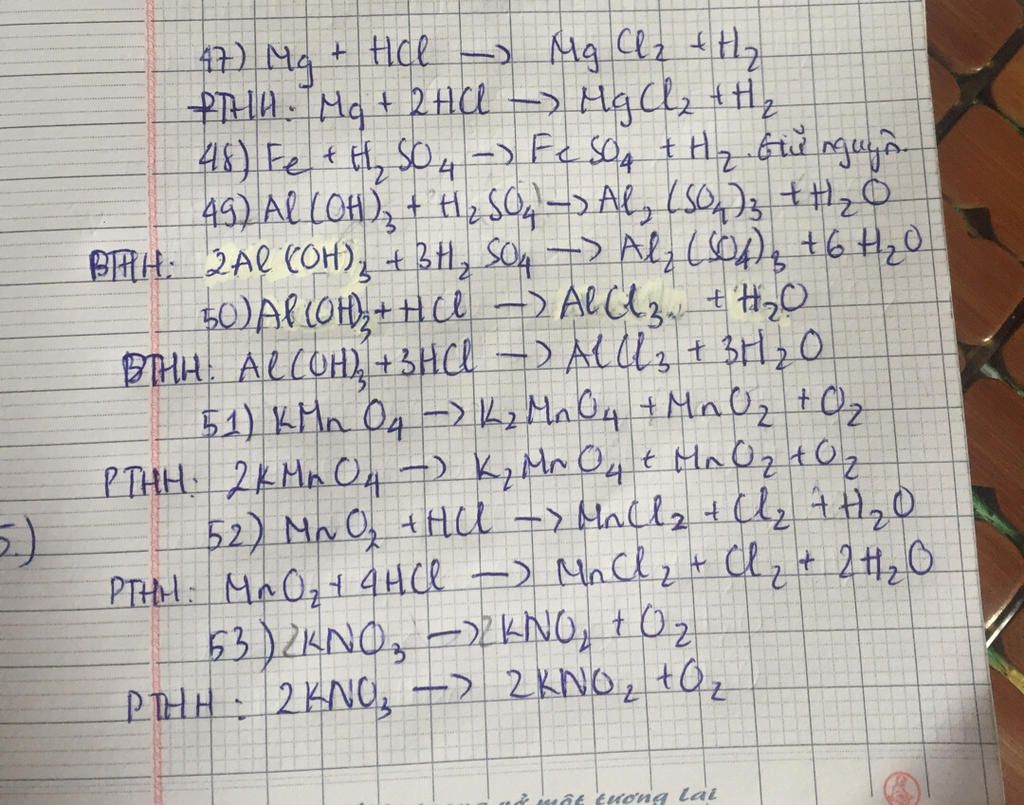 47) Mg + HCl → MgCl₂ + H₂
PTHH: Mg + 2HCl → MgCl₂ + H₂
48) Fe + H₂SO₄ → FeSO₄ + H₂. Giữ nguyên.
49) Al(OH)₃ + H₂SO₄ → Al₂(SO₄)₃ + H₂O
PTHH: 2Al(OH)₃ + 3H₂SO₄ → Al₂(SO₄)₃ + 6H₂O
50) Al(OH)₃ + HCl → AlCl₃ + H₂O
PTHH: Al(OH)₃ + 3HCl → AlCl₃ + 3H₂O
51) KMnO₄ → K₂MnO₄ + MnO₂ + O₂
PTHH: 2KMnO₄ → K₂MnO₄ + MnO₂ + O₂
52) MnO₂ + HCl → MnCl₂ + Cl₂ + H₂O
5.)
PTHH: MnO₂ + 4HCl → MnCl₂ + Cl₂ + 2H₂O
53) 2KNO₃ → 2KNO₂ + O₂
PTHH: 2KNO₃ → 2KNO₂ + O₂
một tương lai